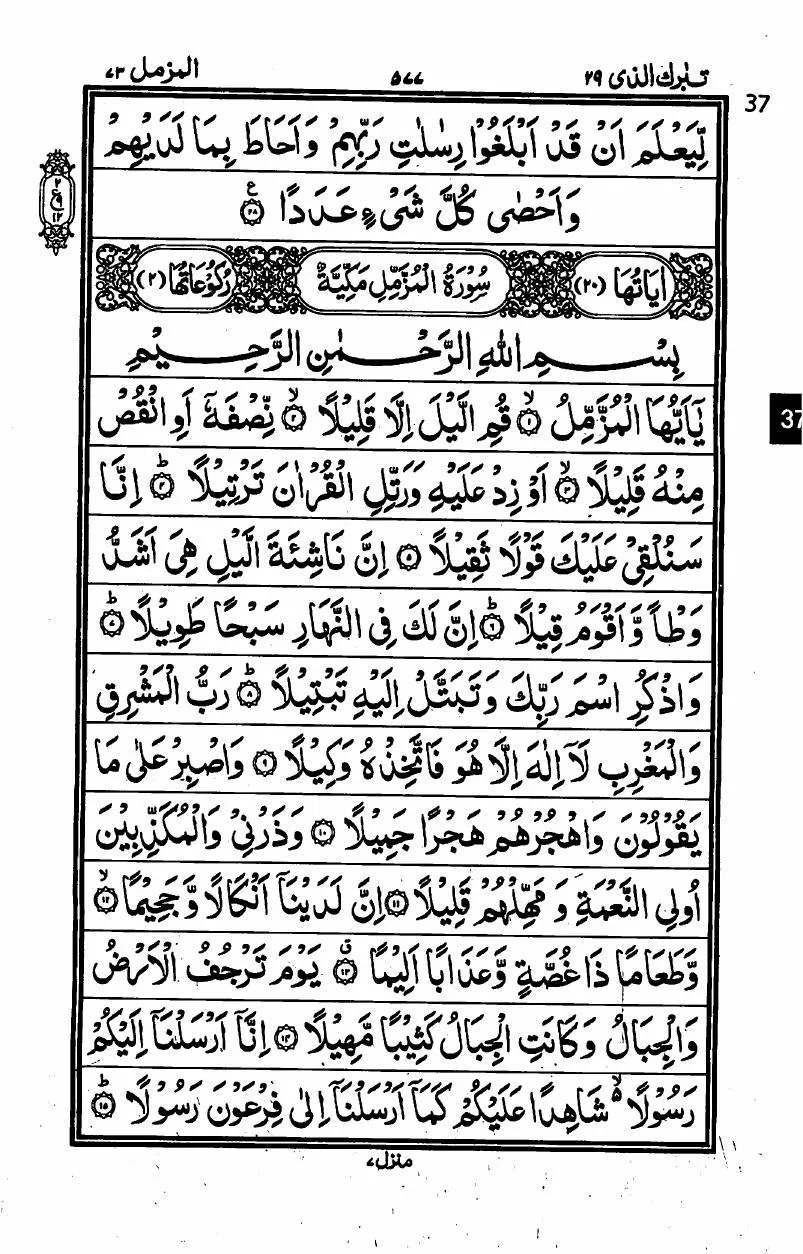 تبٰرك الذی ۲۹
۵۷۷
المزمل ۷۳
37
لِّيَعْلَمَ اَنْ قَدْ اَبْلَغُوْا رِسٰلٰتِ رَبِّهِمْ وَاَحَاطَ بِمَا لَدَيْهِمْ
وَاَحْصٰى كُلَّ شَىْءٍ عَدَدًا ۝۲۸ ع
۲
ع ۹
۱۲
اٰيَاتُهَا (۲۰) سُوْرَةُ الْمُزَّمِّلِ مَكِّيَّةٌ رُكُوْعَاتُهَا (۲)
بِسْمِ اللّٰهِ الرَّحْمٰنِ الرَّحِيْمِ
يٰۤاَيُّهَا الْمُزَّمِّلُ ۝۱ۙ قُمِ الَّيْلَ اِلَّا قَلِيْلًا ۝۲ۙ نِّصْفَهٗۤ اَوِ انْقُصْ
37
مِنْهُ قَلِيْلًا ۝۳ۙ اَوْ زِدْ عَلَيْهِ وَرَتِّلِ الْقُرْاٰنَ تَرْتِيْلًا ۝۴ؕ اِنَّا
سَنُلْقِىْ عَلَيْكَ قَوْلًا ثَقِيْلًا ۝۵ اِنَّ نَاشِئَةَ الَّيْلِ هِىَ اَشَدُّ
وَطْاً وَّاَقْوَمُ قِيْلًا ۝۶ؕ اِنَّ لَكَ فِى النَّهَارِ سَبْحًا طَوِيْلًا ۝۷ؕ
وَاذْكُرِ اسْمَ رَبِّكَ وَتَبَتَّلْ اِلَيْهِ تَبْتِيْلًا ۝۸ؕ رَبُّ الْمَشْرِقِ
وَالْمَغْرِبِ لَاۤ اِلٰهَ اِلَّا هُوَ فَاتَّخِذْهُ وَكِيْلًا ۝۹ وَاصْبِرْ عَلٰى مَا
يَقُوْلُوْنَ وَاهْجُرْهُمْ هَجْرًا جَمِيْلًا ۝۱۰ وَذَرْنِىْ وَالْمُكَذِّبِيْنَ
اُولِى النَّعْمَةِ وَمَهِّلْهُمْ قَلِيْلًا ۝۱۱ اِنَّ لَدَيْنَاۤ اَنْكَالًا وَّجَحِيْمًا ۝۱۲ۙ
وَّطَعَامًا ذَا غُصَّةٍ وَّعَذَابًا اَلِيْمًا ۝۱۳ق يَوْمَ تَرْجُفُ الْاَرْضُ
وَالْجِبَالُ وَكَانَتِ الْجِبَالُ كَثِيْبًا مَّهِيْلًا ۝۱۴ اِنَّاۤ اَرْسَلْنَاۤ اِلَيْكُمْ
رَسُوْلًا ۙ شَاهِدًا عَلَيْكُمْ كَمَاۤ اَرْسَلْنَاۤ اِلٰى فِرْعَوْنَ رَسُوْلًا ۝۱۵ؕ
منزل ۷